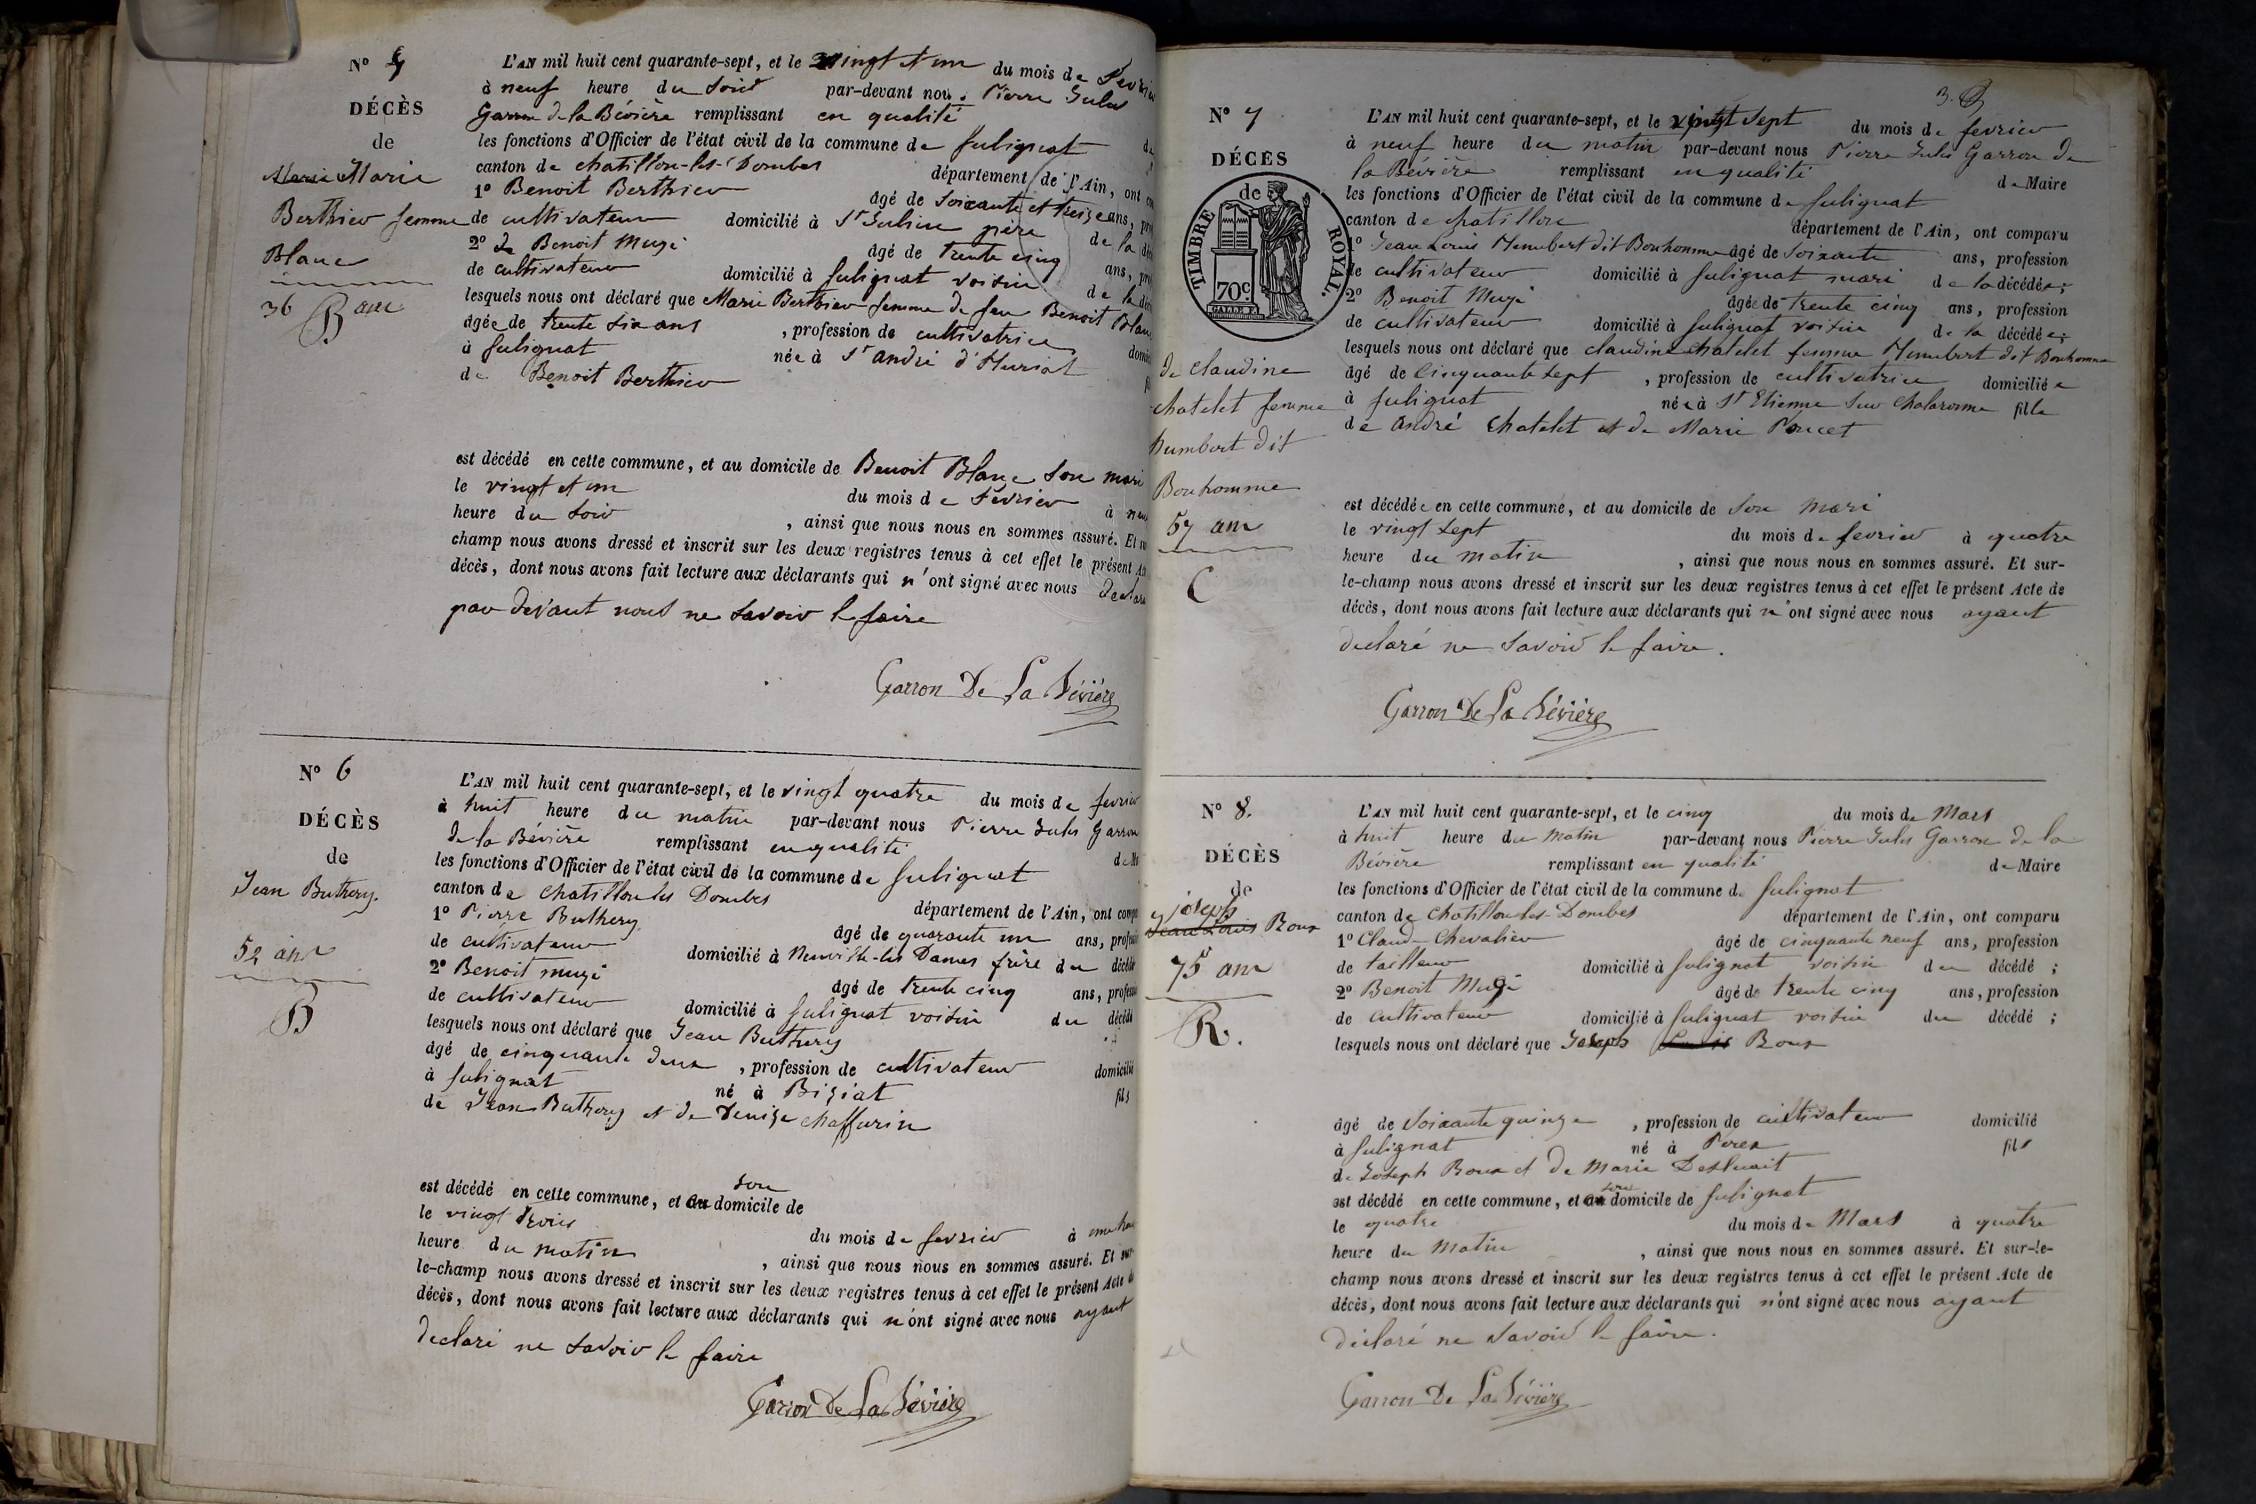 N° 5
DÉCÈS
de
Marie Marie
Berthier femme
Blanc
36 ans
B
L'AN mil huit cent quarante-sept, et le vingt et un du mois de fevrier
à neuf heure du soir par-devant nous Pierre Jules
Garron de la Bévière remplissant en qualité
les fonctions d'Officier de l'état civil de la commune de Sulignat
canton de chatillon-les-Dombes département de l'Ain, ont
1° Benoit Berthier âgé de soixante et treize ans,
de cultivateur domicilié à St Julien père de la
2° de Benoit Mugé âgé de trente cinq ans,
de cultivateur domicilié à Sulignat voisin de la
lesquels nous ont déclaré que Marie Berthier femme de feu Benoit Blanc
âgée de trente six ans , profession de cultivatrice
à Sulignat née à St andré d'Huriat
de Benoit Berthier
est décédé en cette commune, et au domicile de Benoit Blanc son mari
le vingt et un du mois de fevrier à
heure du soir , ainsi que nous nous en sommes assuré. Et
champ nous avons dressé et inscrit sur les deux registres tenus à cet effet le présent
décès, dont nous avons fait lecture aux déclarants qui n'ont signé avec nous
par devant nous ne savoir le faire
Garron De La Bévière
N° 6
DÉCÈS
de
Jean Buthery.
52 ans
B
L'AN mil huit cent quarante-sept, et le vingt quatre du mois de fevrier
à huit heure du matin par-devant nous Pierre Jules Garron
de la Bévière remplissant en qualité
les fonctions d'Officier de l'état civil de la commune de Sulignat
canton de chatillon les Dombes département de l'Ain, ont
1° Pierre Buthery âgé de quarante un ans,
de cultivateur domicilié à Neuville-les Dames frère du
2° Benoit mugé âgé de trente cinq ans,
de cultivateur domicilié à Sulignat voisin du
lesquels nous ont déclaré que Jean Buthery
âgé de cinquante deux , profession de cultivateur domicilié
à Sulignat né à Biziat fils
de Jean Buthery et de Denise chaffurin
est décédé en cette commune, et au son domicile de
le vingt trois du mois de fevrier à
heure du matin , ainsi que nous nous en sommes assuré. Et sur
le-champ nous avons dressé et inscrit sur les deux registres tenus à cet effet le présent Acte
décès, dont nous avons fait lecture aux déclarants qui n'ont signé avec nous ayant
declaré ne savoir le faire
Garron De La Bévière
3.
N° 7
DÉCÈS
de
TIMBRE ROYAL.
70c
de claudine
chatelet femme
humbert dit
Bonhomme
57 ans
C
L'AN mil huit cent quarante-sept, et le vingt sept du mois de fevrier
à neuf heure du matin par-devant nous Pierre Jules Garron de
la Bévière remplissant en qualité de Maire
les fonctions d'Officier de l'état civil de la commune de Sulignat
canton de chatillon département de l'Ain, ont comparu
1° Jean Louis Humbert dit Bonhomme âgé de soixante ans, profession
de cultivateur domicilié à Sulignat mari de la décédée;
2° Benoit Mugé âgé de trente cinq ans, profession
de cultivateur domicilié à Sulignat voisin de la décédée;
lesquels nous ont déclaré que claudine chatelet femme Humbert dit Bonhomme
âgé de cinquante sept , profession de cultivatrice domiciliée
à Sulignat née à St Etienne sur chalaronne fille
de andré chatelet et de Marie Poncet
est décédée en cette commune, et au domicile de son mari
le vingt sept du mois de fevrier à quatre
heure du matin , ainsi que nous nous en sommes assuré. Et sur-
le-champ nous avons dressé et inscrit sur les deux registres tenus à cet effet le présent Acte de
décès, dont nous avons fait lecture aux déclarants qui n'ont signé avec nous ayant
declaré ne savoir le faire.
Garron De La Bévière
N° 8.
DÉCÈS
de
joseph
Jean Louis Roux
75 ans
R.
L'AN mil huit cent quarante-sept, et le cinq du mois de Mars
à huit heure du Matin par-devant nous Pierre Jules Garron de la
Bévière remplissant en qualité de Maire
les fonctions d'Officier de l'état civil de la commune de Sulignat
canton de chatillon les-Dombes département de l'Ain, ont comparu
1° Claude Chevalier âgé de cinquante neuf ans, profession
de tailleur domicilié à Sulignat voisin du décédé ;
2° Benoit Mugé âgé de trente cinq ans, profession
de cultivateur domicilié à Sulignat voisin du décédé ;
lesquels nous ont déclaré que Joseph Louis Roux
âgé de soixante quinze , profession de cultivateur domicilié
à Sulignat né à Perex fils
de Joseph Roux et de Marie
est décédé en cette commune, et au son domicile de Sulignat
le quatre du mois de Mars à quatre
heure du Matin , ainsi que nous nous en sommes assuré. Et sur-le-
champ nous avons dressé et inscrit sur les deux registres tenus à cet effet le présent Acte de
décès, dont nous avons fait lecture aux déclarants qui n'ont signé avec nous ayant
déclaré ne savoir le faire.
Garron De La Bévière